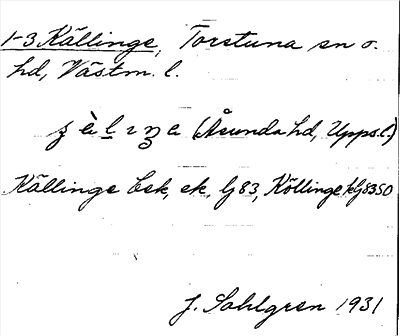 1-3 Källinge, Torstuna sn o.
hd, Västm. l.
(Åsunda hd, Upps.l.)
Källinge bsk, ek, lj 83, Köllinge
J. Sahlgren 1931